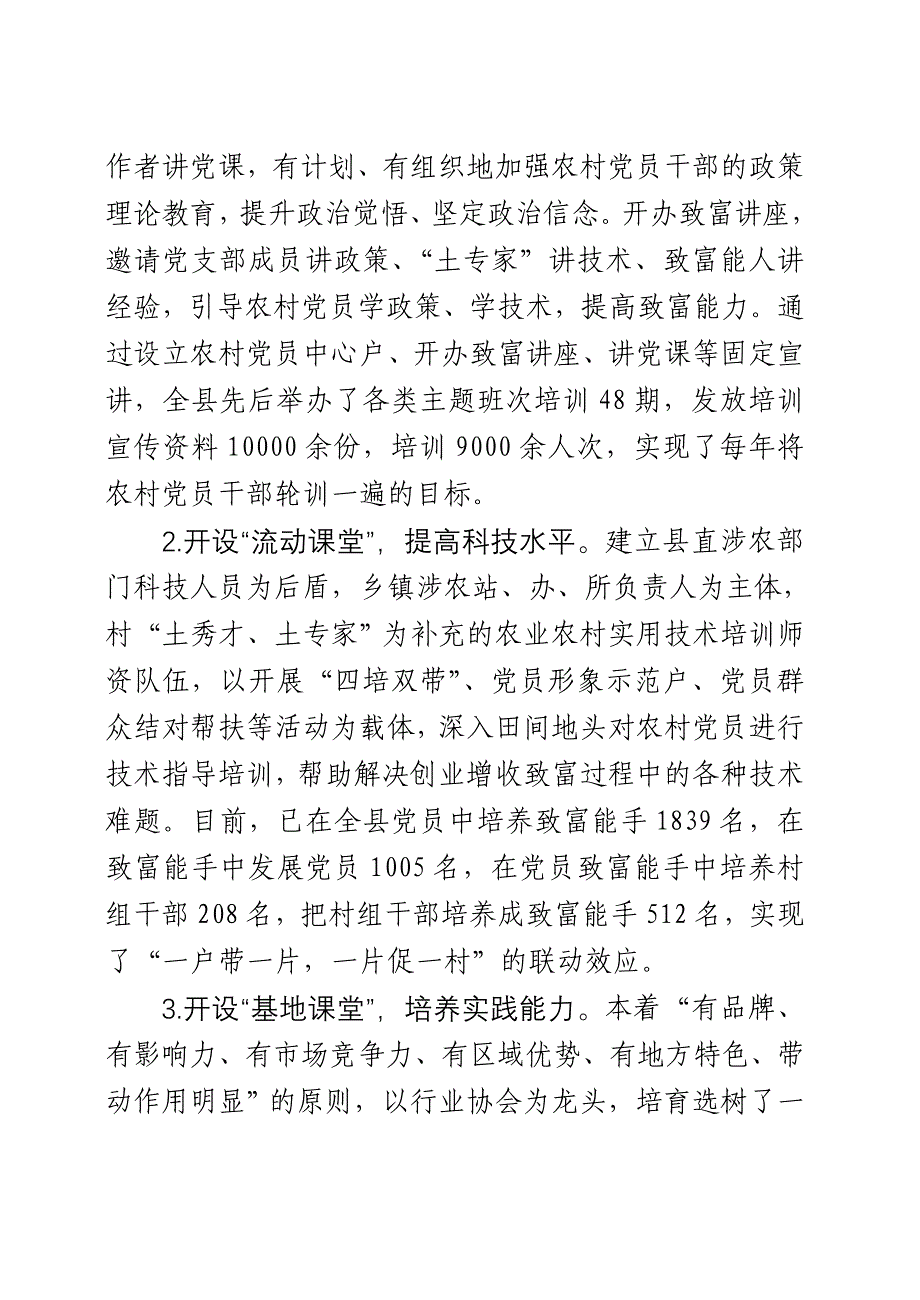 作者讲党课，有计划、有组织地加强农村党员干部的政策
理论教育，提升政治觉悟、坚定政治信念。开办致富讲座，
邀请党支部成员讲政策、“土专家”讲技术、致富能人讲
经验，引导农村党员学政策、学技术，提高致富能力。通
过设立农村党员中心户、开办致富讲座、讲党课等固定宣
讲，全县先后举办了各类主题班次培训 48 期，发放培训
宣传资料 10000 余份，培训 9000 余人次，实现了每年将
农村党员干部轮训一遍的目标。
2.开设“流动课堂”，提高科技水平。建立县直涉农部
门科技人员为后盾，乡镇涉农站、办、所负责人为主体，
村“土秀才、土专家”为补充的农业农村实用技术培训师
资队伍，以开展“四培双带”、党员形象示范户、党员群
众结对帮扶等活动为载体，深入田间地头对农村党员进行
技术指导培训，帮助解决创业增收致富过程中的各种技术
难题。目前，已在全县党员中培养致富能手 1839 名，在
致富能手中发展党员 1005 名，在党员致富能手中培养村
组干部 208 名，把村组干部培养成致富能手 512 名，实现
了“一户带一片，一片促一村”的联动效应。
3.开设“基地课堂”，培养实践能力。本着“有品牌、
有影响力、有市场竞争力、有区域优势、有地方特色、带
动作用明显”的原则，以行业协会为龙头，培育选树了一